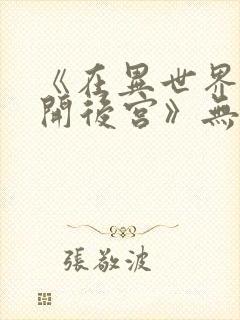 《在異世界
開後宮》無
張敬波